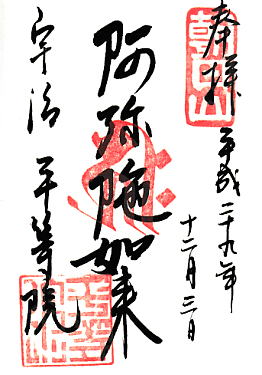 奉拝
平成二十九年
十二月三日
阿弥陀如来
宇治 平等院